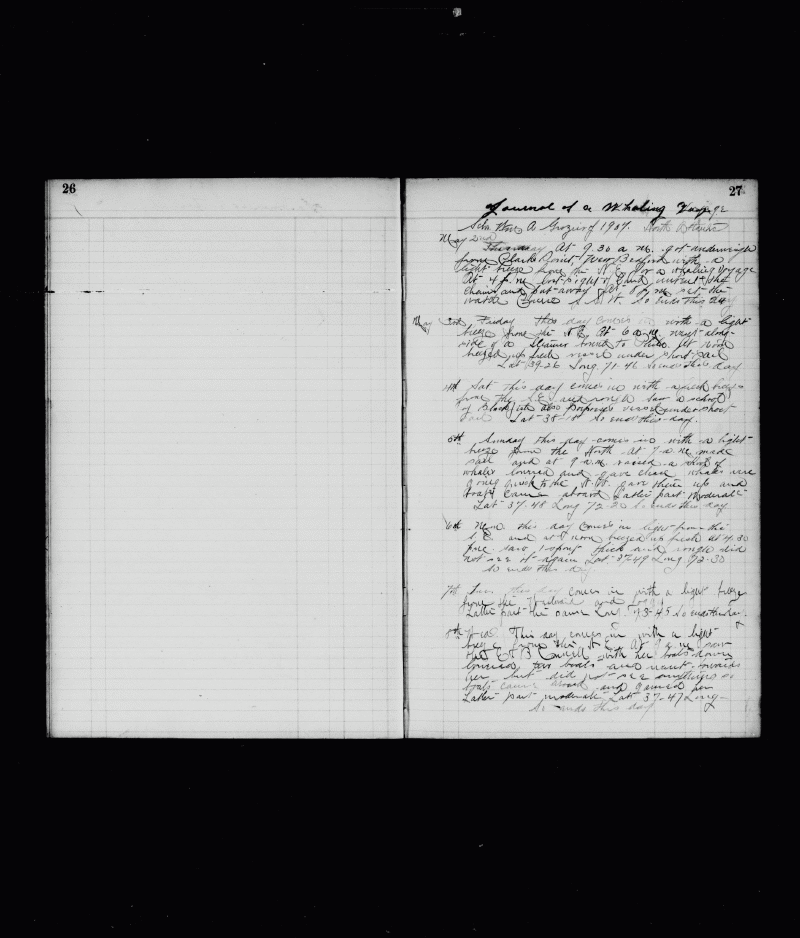 26
27
Journal of a Whaling Voyage
Schr Thos A Grozier of 1907. North Atlantic
May 2nd
Thursday At 9.30 a m. got underweigh
from Clarks Point, New Bedford with a
light breeze from the N E for a whaling voyage
At 4 p.m.
chains and put away At 8 p m set the
watch Course S.S.W. So ends this day
May 3rd Friday this day comes in with a light
breeze from the N E At 6 a m went along-
side of a Steamer bound to At noon
breezed up fresh vessel under short sail
Lat 39-26 Long 71-46 So ends this day
4th Sat this day comes in with a fresh breeze
from the S.E. and rough Saw a school
of Blackfish also Porpoise vessel under short
sail Lat 38-18 So ends this day.
5th Sunday this day comes in with a light
breeze from the North At 7 a m made
sail and at 9 a.m. raised a of
whales lowered and gave chase whales were
going quick to the gave them up and
boats came aboard Latter part Moderate
Lat 37.48 Long 72-20 So ends this day
6th Mon this day comes in light from the
S E and at noon breezed up fresh at 4.30
saw 1 spout thick and rough did
not see it again Lat 37-49 Long 72-30
So ends this day
7th Tues this day comes in with a light breeze
from the and
Latter part the same Long. 73-45 So ends this day.
8th Wed. This day comes in with a light
breeze from the N E At saw
the with her boats down
lowered two boats and went towards
her but did not see anything so
boats came aboard and
Latter part moderate Lat 37-47 Long-
So ends this day